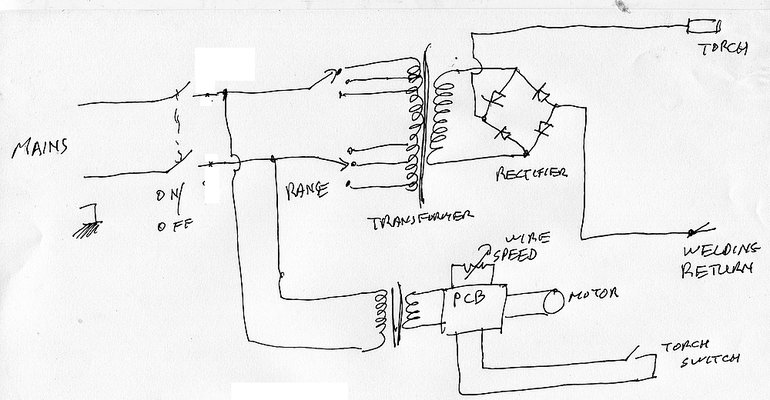 TORCH
MAINS
ON/
OFF
RANGE
TRANSFORMER
RECTIFIER
WIRE
SPEED
WELDING
RETURN
PCB
MOTOR
TORCH
SWITCH